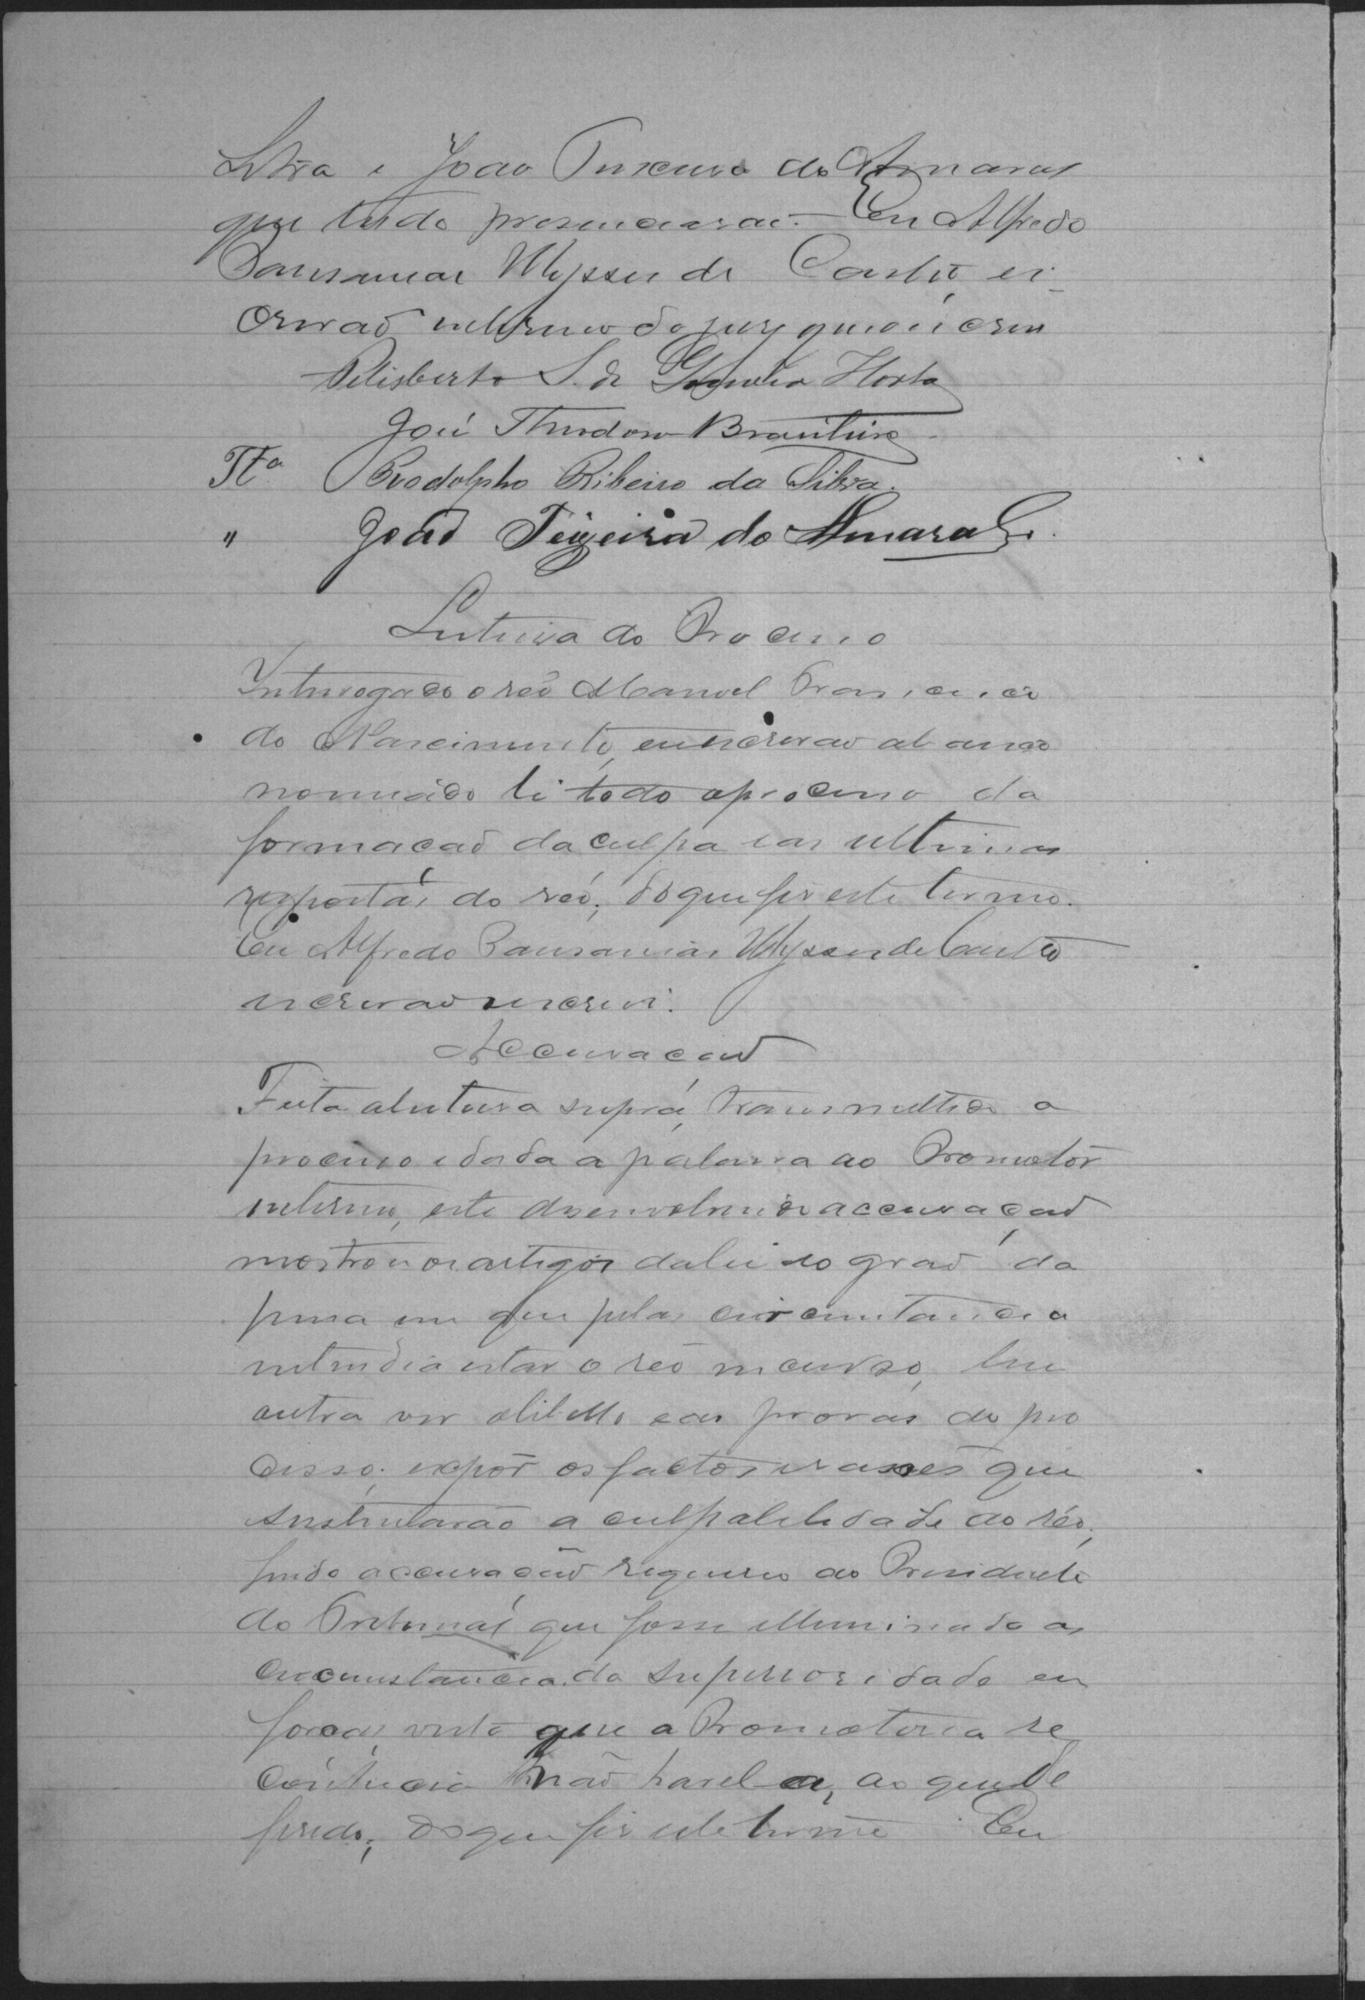 Silva e João Teixeira do Amaral
que tudo presenciarão. Eu Alfredo
Pausanias Ulysses de Castro, es-
crivaõ interino do jury que o escrevi
Felisberto S. de Horta
José Theodoro Brasileiro
Tª Rodolpho Ribeiro da Silva.
" João Teixeira do Amaral.
Leitura do Processo
Interrogado o réo Manoel Francisco
do Nascimento, eu escrivão abaixo
nomeado li todo o processo da
formacaõ da culpa e as ultimas
respostas do réo; do que fiz este termo.
Eu Alfredo Pausanias Ulysses de Castro
escrivão o escrevi.
Accusaçaõ
Feita a leitura supra, transmettido o
processo e dada a palavra ao Promotor
interino, este desenvolvendo a accusaçaõ
mostrou os artigos da lei e o grao da
pena em que pelas circumstancias
entendia estar o réo incurso, leu
outra vez o libello e as provas do pro
cesso, expôr os factos e rasões que
sustentavão a culpabilidade do réo;
finda a accusação requereu ao Presidente
do Tribunal que fosse elliminado as
circumstancia da superioridade em
forças, visto que a Promotoria se
não haver a, ao que de
ferido; do que fiz este termo Eu